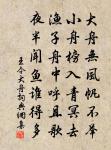 大舟無風帆不舉
小舟榜入青冥去
漁子舟中呼且歌
夜半聞魚誰得多
王令大舟詞典網集